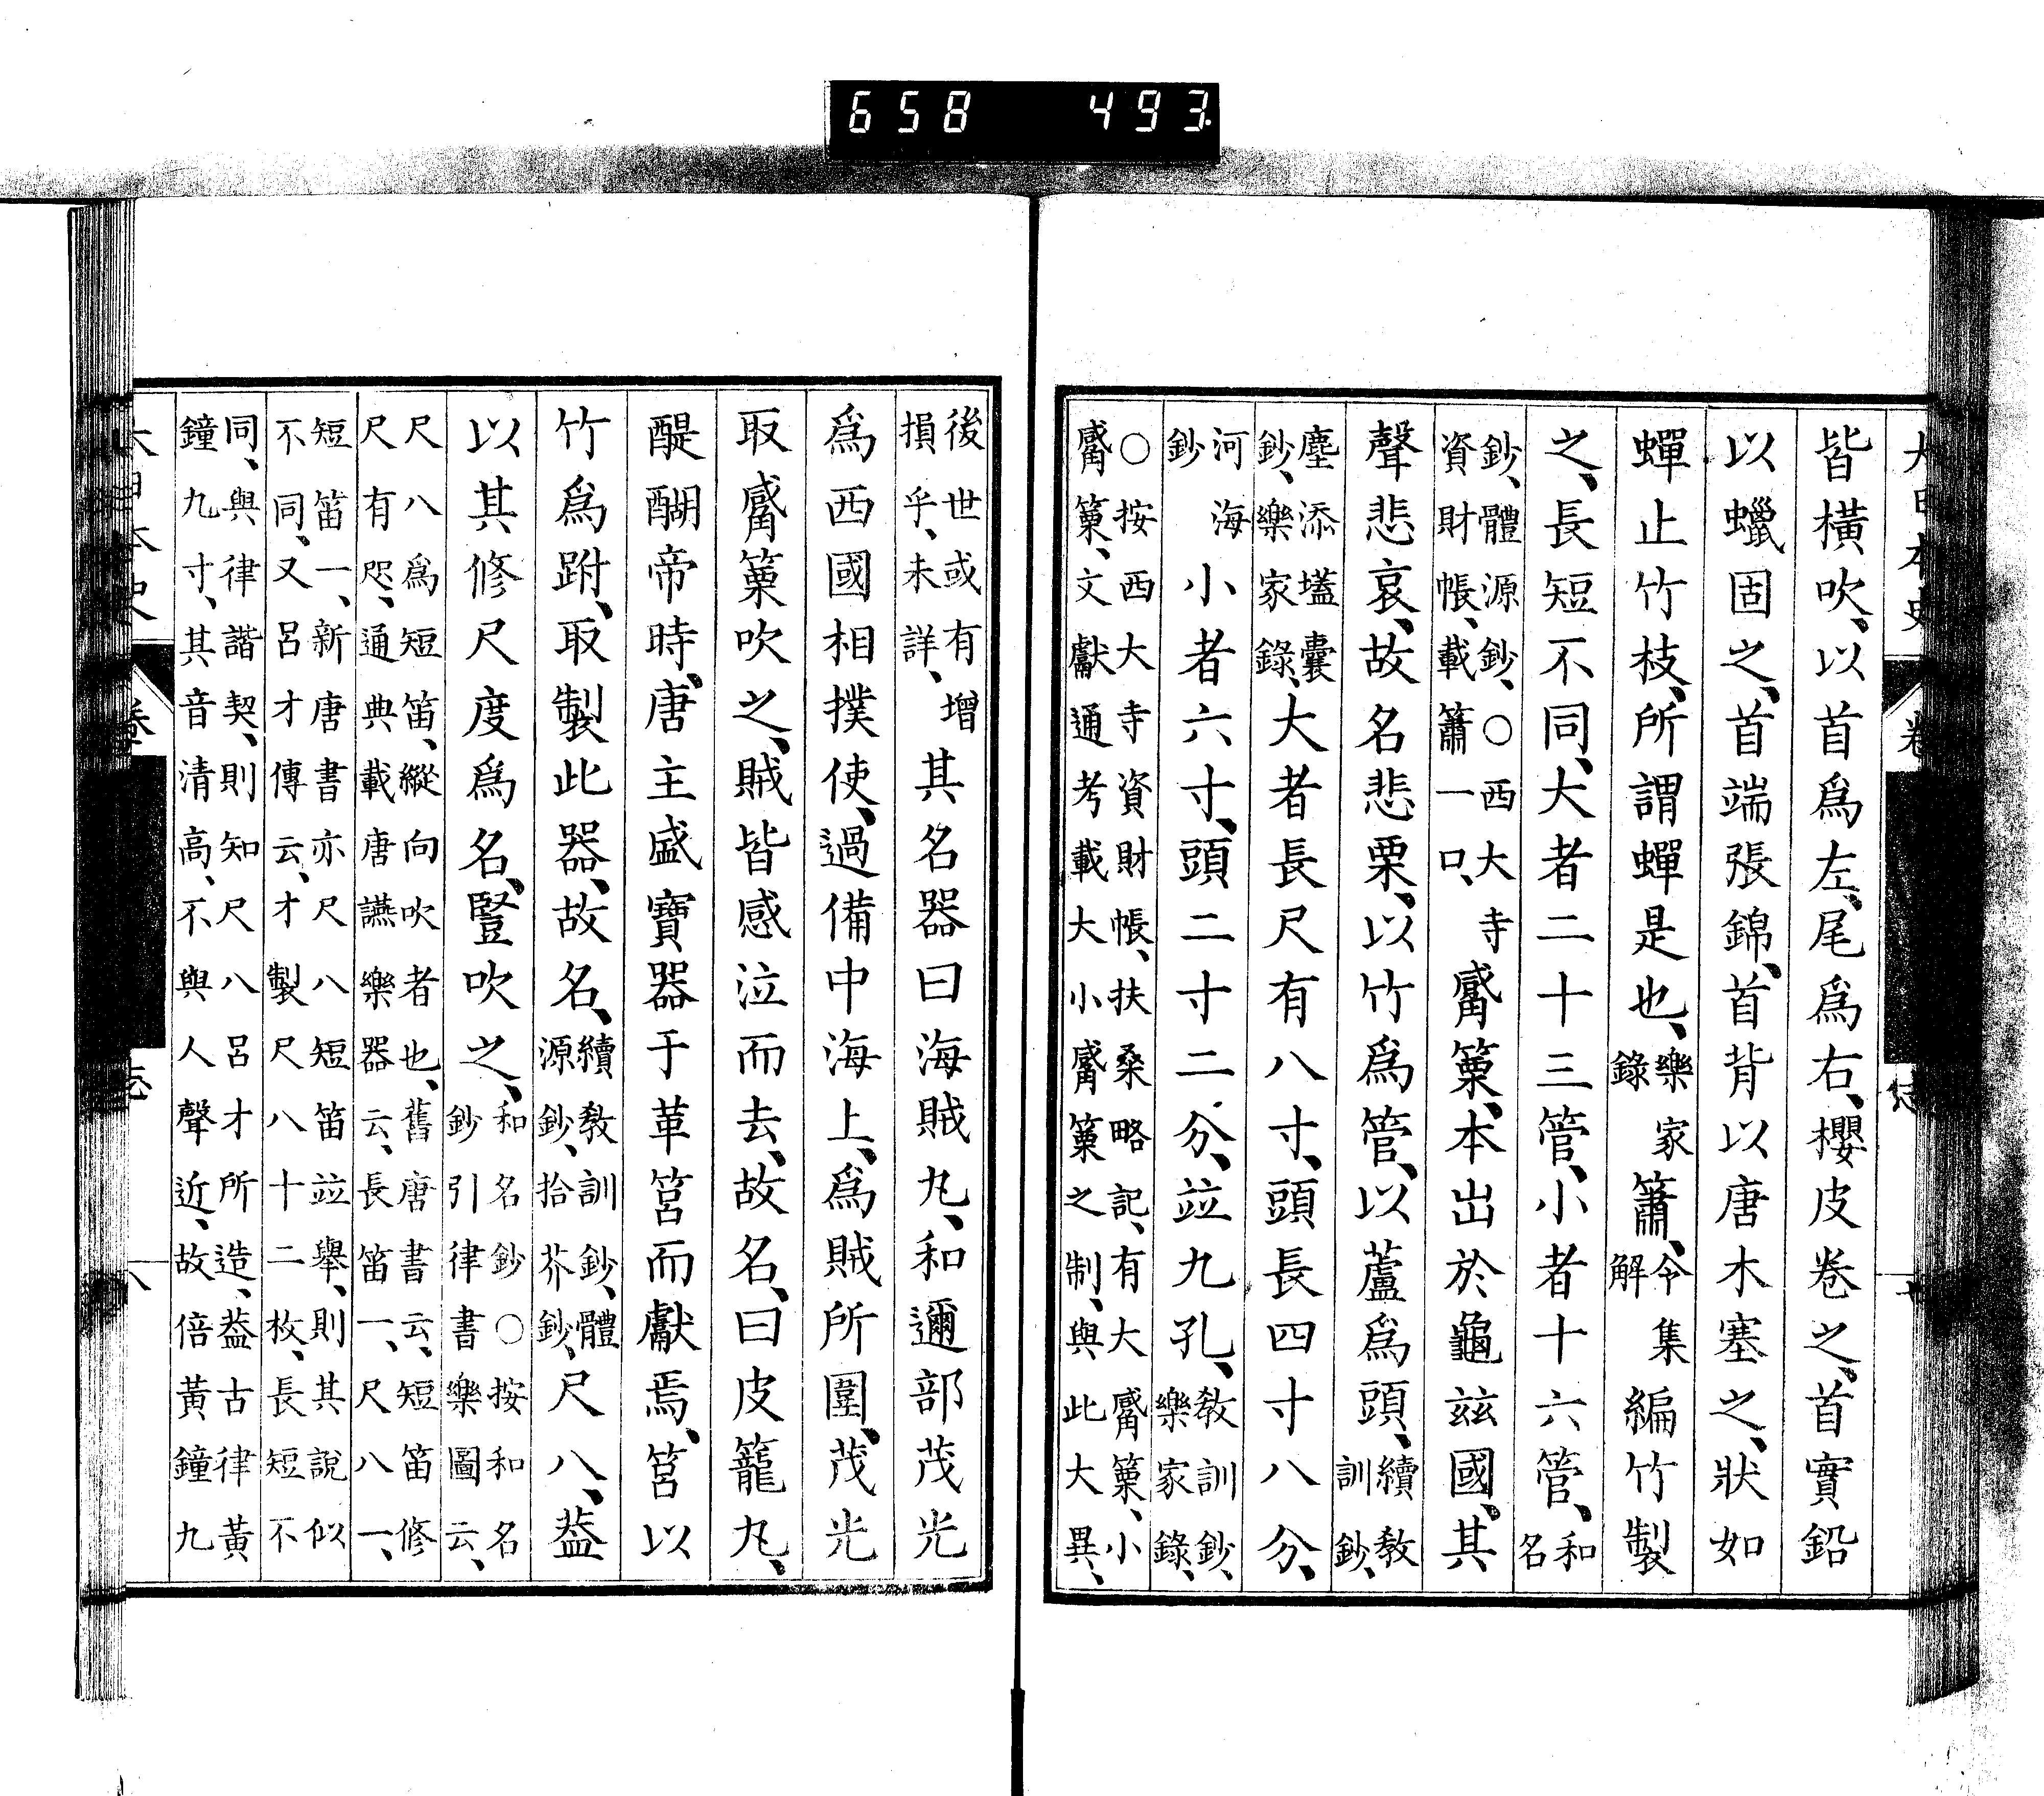 658 493
皆橫吹、以首爲左、尾爲右、櫻皮卷之、首實鉛
以蠟固之、首端張錦、首背以唐木塞之、狀如
蟬止竹枝、所謂蟬是也、樂家錄簫、令集解編竹製
之、長短不同、大者二十三管、小者十六管、和名
鈔、體源鈔、○西大寺資財帳、載簫一口、觱篥、本出於龜玆國、其
聲悲哀、故名悲栗、以竹爲管、以蘆爲頭、續敎訓鈔、
塵添壒囊鈔、樂家錄、大者長尺有八寸、頭長四寸八分、
河海鈔小者六寸、頭二寸二分、竝九孔、敎訓鈔、樂家錄、
○按西大寺資財帳、扶桑略記、有大觱篥、小觱篥、文獻通考載大小觱篥之制、與此大異、
後世或有增損乎、未詳、其名器曰海賊丸、和邇部茂光
爲西國相撲使、過備中海上、爲賊所圍、茂光
取觱篥吹之、賊皆感泣而去、故名、曰皮籠丸、
醍醐帝時、唐主盛寶器于革筥而獻焉、筥以
竹爲跗、取製此器、故名、續敎訓鈔、體源鈔、拾芥鈔、尺八、葢
以其修尺度爲名、豎吹之、和名鈔○按和名鈔引律書樂圖云、
尺八爲短笛、縱向吹者也、舊唐書云、短笛修尺有咫、通典載唐讌樂器云、長笛一、尺八一、
短笛一、新唐書亦尺八短笛竝舉、則其說似不同、又呂才傳云、才製尺八十二枚、長短不
同、與律諧契、則知尺八呂才所造、葢古律黃鐘九寸、其音清高、不與人聲近、故倍黃鐘九